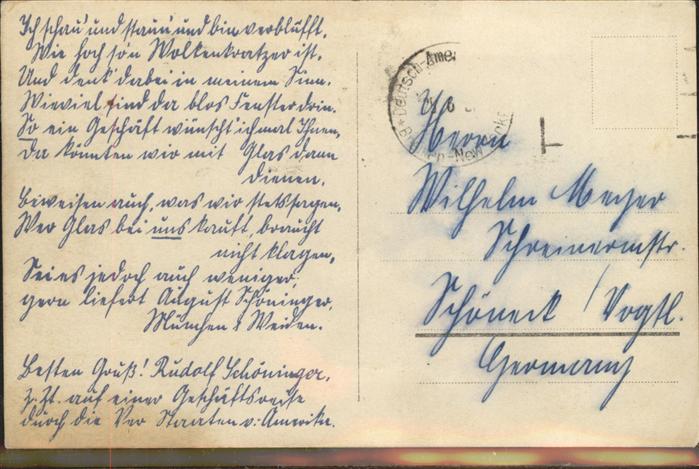 Ich schau' und staun' und bin verblüfft,
Wie hoch so'n Wolkenkratzer ist.
Und denk' dabei in meinem Sinn.
Wieviel sind da blos Fenster drin.
So ein Geschäft wünscht ich mal Ihnen,
Da könnten wir mit Glas dann
dienen.
Beweisen auch, was wir stets sagen,
Wer Glas bei uns kauft, braucht
nicht klagen,
Sei es jedoch auch weniger,
gern liefert August Schöninger,
München & Weiden.
Besten Gruß! Rudolf Schöninger,
z. Zt. auf einer Geschäftsreise
durch die Ver Staaten v. Amerika.
Deutsch-Ame
New
Herrn
Wilhelm Meyer
Schreinermstr.
Schöneck / Vogtl.
Germany